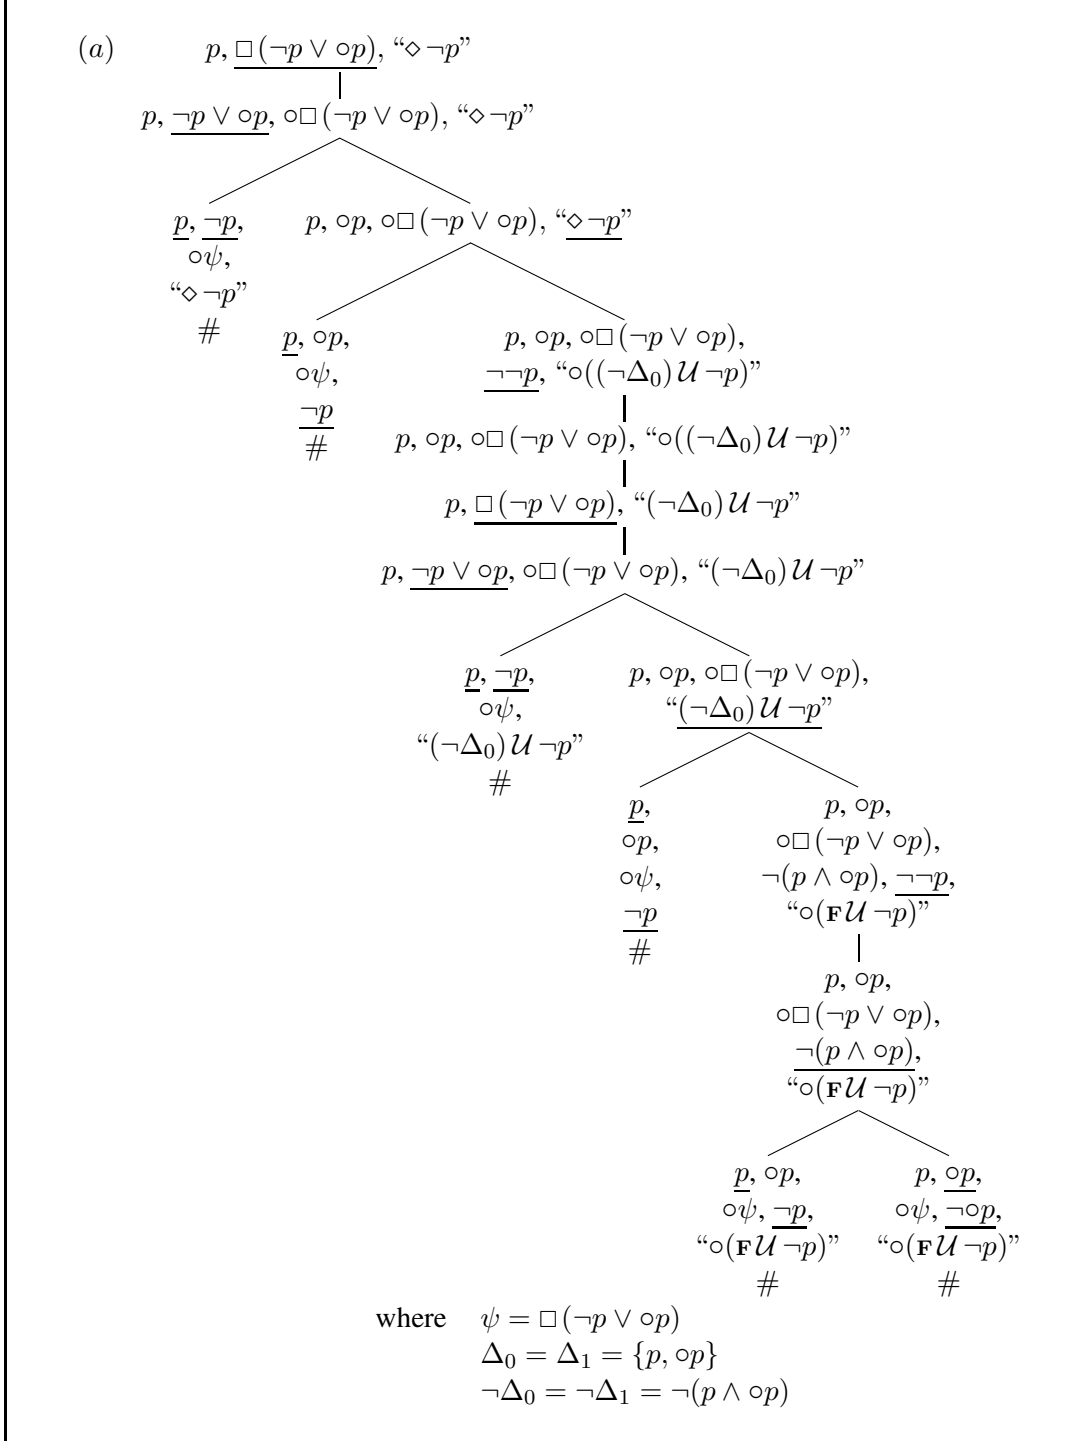 (a) p, □(¬p ∨ ○p), “◇¬p”
p, ¬p ∨ ○p, ○□(¬p ∨ ○p), “◇¬p”
p, ¬p, p, ○p, ○□(¬p ∨ ○p), “◇¬p”
○ψ,
“◇¬p”
# p, ○p, p, ○p, ○□(¬p ∨ ○p),
○ψ, ¬¬p, “○((¬Δ₀) 𝒰 ¬p)”
¬p
# p, ○p, ○□(¬p ∨ ○p), “○((¬Δ₀) 𝒰 ¬p)”
p, □(¬p ∨ ○p), “(¬Δ₀) 𝒰 ¬p”
p, ¬p ∨ ○p, ○□(¬p ∨ ○p), “(¬Δ₀) 𝒰 ¬p”
p, ¬p, p, ○p, ○□(¬p ∨ ○p),
○ψ, “(¬Δ₀) 𝒰 ¬p”
“(¬Δ₀) 𝒰 ¬p”
#
p, p, ○p,
○p, ○□(¬p ∨ ○p),
○ψ, ¬(p ∧ ○p), ¬¬p,
¬p “○(F 𝒰 ¬p)”
#
p, ○p,
○□(¬p ∨ ○p),
¬(p ∧ ○p),
“○(F 𝒰 ¬p)”
p, ○p, p, ○p,
○ψ, ¬p, ○ψ, ¬○p,
“○(F 𝒰 ¬p)” “○(F 𝒰 ¬p)”
# #
where ψ = □(¬p ∨ ○p)
Δ₀ = Δ₁ = {p, ○p}
¬Δ₀ = ¬Δ₁ = ¬(p ∧ ○p)